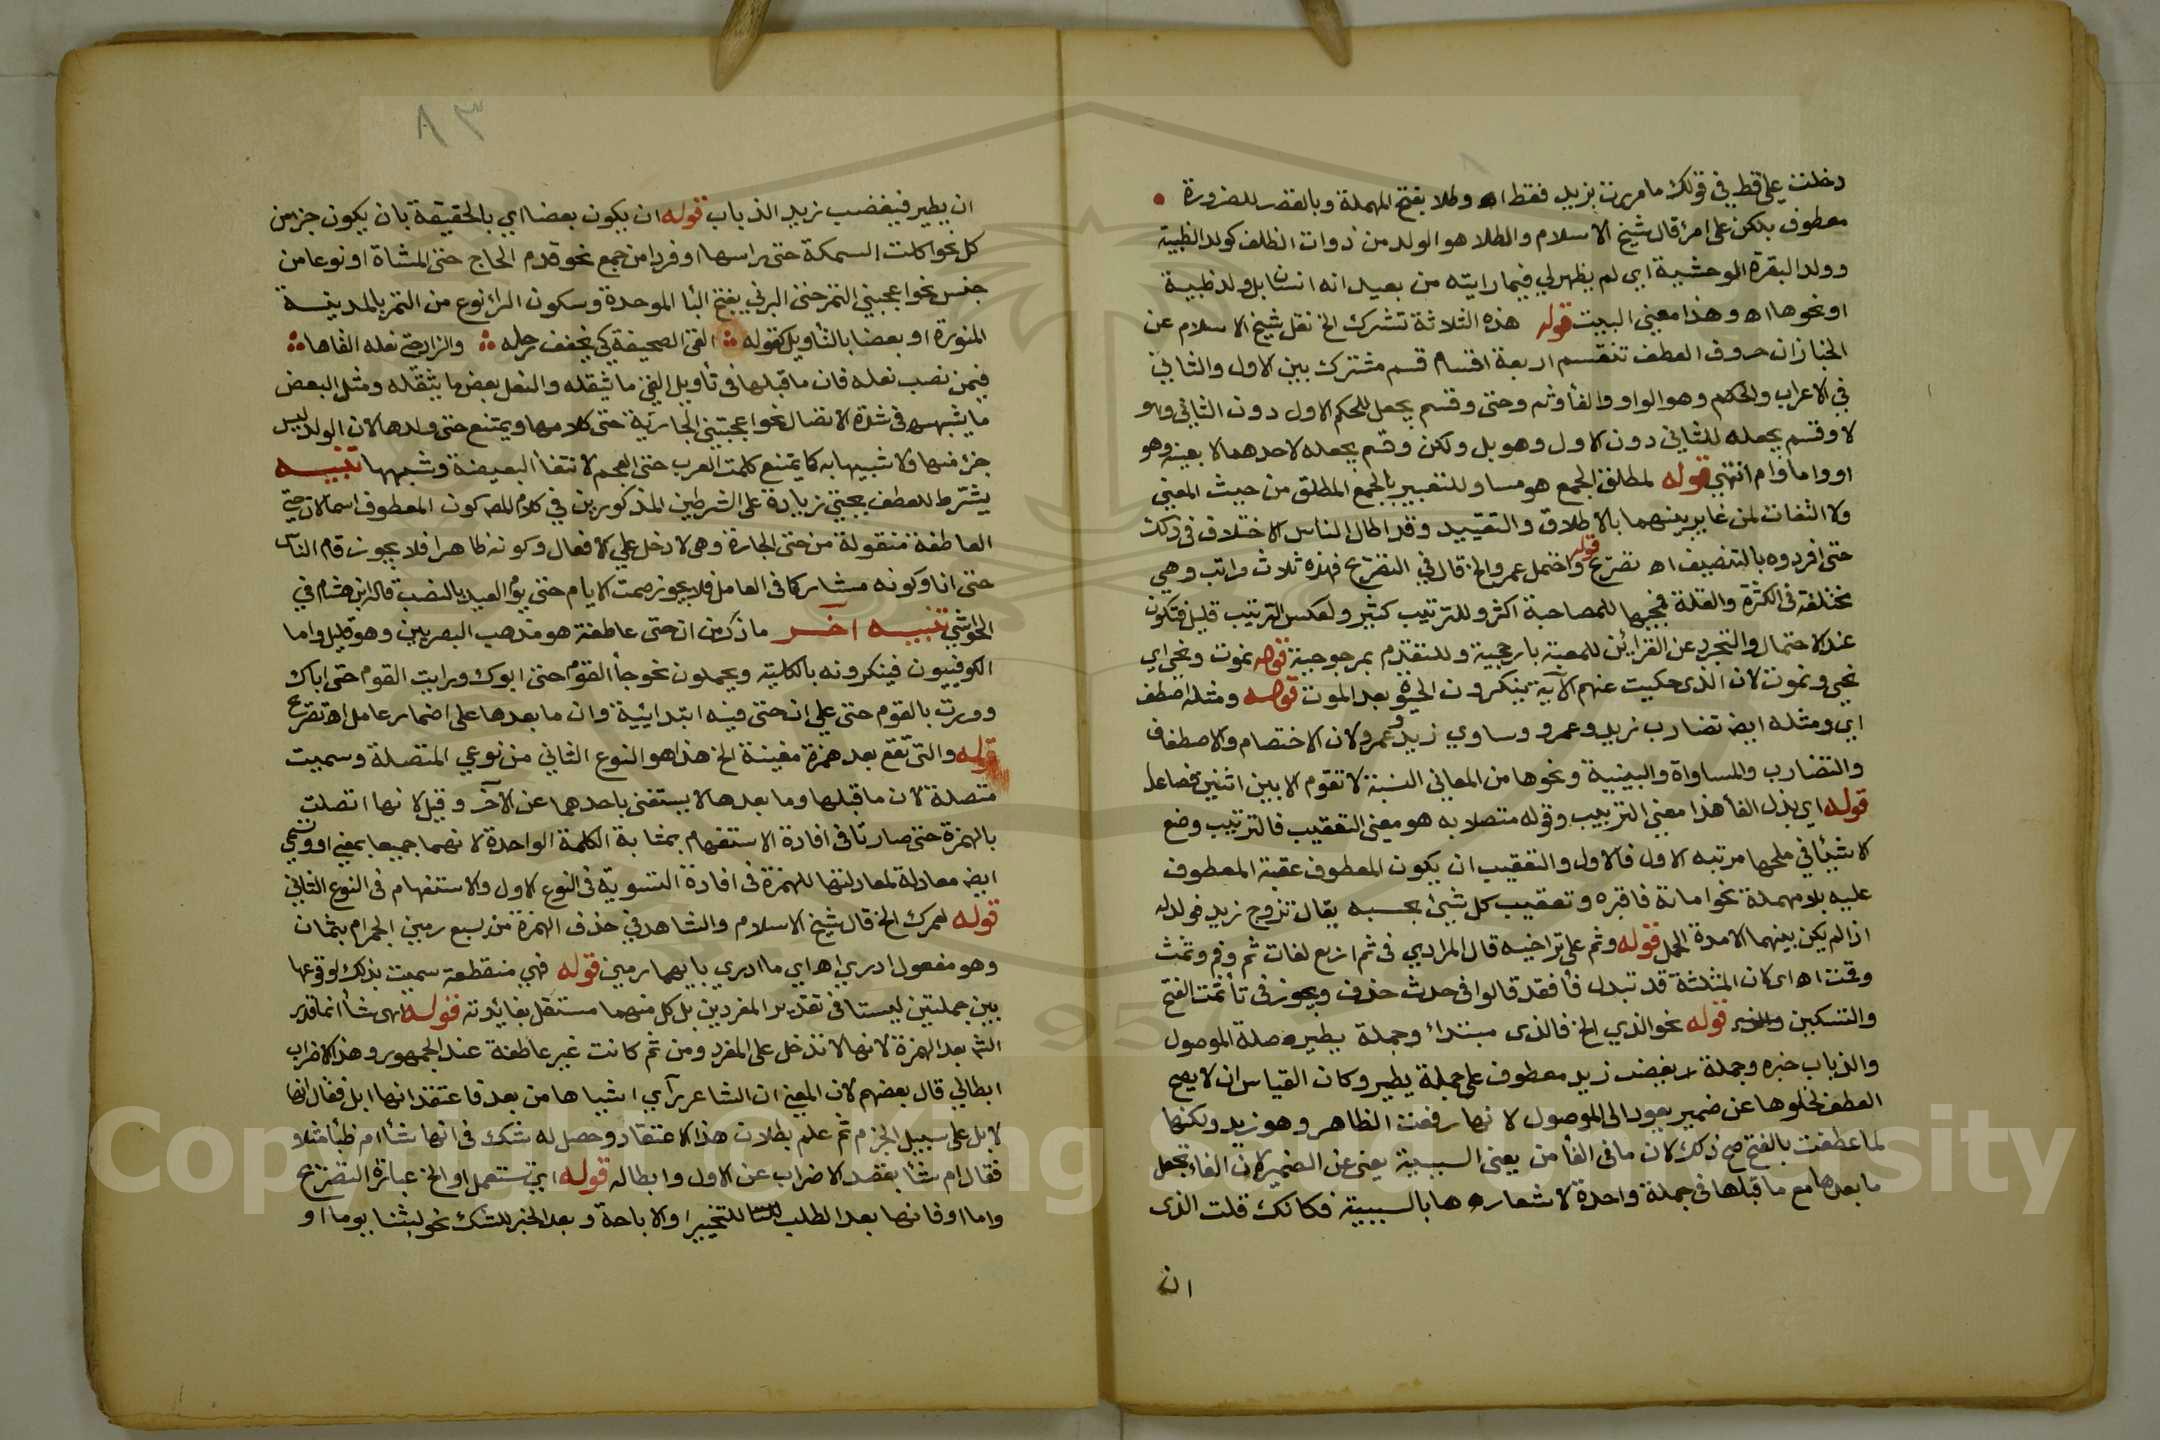 دخلت على قط في قولك ما مررت بزيد فقط اه وطلا بفتح المهملة وبالقصر للضرورة
معطوف بلكن على امرٔ قال شيخ الاسلام والطلا هو الولد من ذوات الظلف كولد الظبية
وولد البقرة الوحشية اي لم يظهر لي فيما رايته من بعيد انه انسان بل ولد ظبية
او نحوها اه وهذا معنى البيت قوله هذه الثلاثة تشرك الخ نقل شيخ الاسلام عن
الخباز ان حروف العطف تنقسم اربعة اقسام قسم مشترك بين الاول والثاني
في الاعراب والحكم وهو الواو والفأ وثم وحتى وقسم يجعل للحكم الاول دون الثاني وهو
لا وقسم يجعله للثاني دون الاول وهو بل ولكن وقسم يجعله لاحدهما لا بعينه وهو
او واما وام انتهى قوله لمطلق الجمع هو مساو للتعبير بالجمع المطلق من حيث المعنى
ولا التفات لمن غاير بينهما بالاطلاق والتقييد وقد اطال الناس الاختلاف في ذلك
حتى افردوه بالتصنيف اه تصريح قوله واختمل عمرو الخ قال في التصريح فهذه ثلاث مراتب وهي
مختلفة في الكثرة والقلة فمجيئها للمصاحبة اكثر وللترتيب كثير ولعكس الترتيب قليل فتكون
عند الاحتمال والتجرد عن القرائن للمعية بارجحية وللتقدم بمرجوحية قوله نموت ونحي اي
نحي ونموت لان الذي حكيت عنهم الآية ينكرون الحيوة بعد الموت قوله ومثله اصطف
اي ومثله ايضا تضارب زيد وعمرو وساوي زيد وعمرو لان الاختصام والاصطفاف
والتضارب والمساواة والبينية ونحوها من المعاني النسبية لا تقوم الا بين اثنين فصاعدا
قوله اي بدل الفأ هذا معنى الترتيب وقوله متصلا به هو معنى التعقيب فالترتيب وضع
الاشيأ في محلها مرتبه الاول فالاول والتعقيب ان يكون المعطوف عقبة المعطوف
عليه بلا مهملة نحو اماتة فاقبره وتعقيب كل شيئ بحسبه يقال تزوج زيد فولد له
اذا لم يكن بينهما الا مدة الحمل قوله وثم على تراخيه قال المرادي في ثم اربع لغات ثم وفم وثمث
وثمت اه اي كان المثلثة قد تبدل فأ فقد قالوا في حدث حذف ويجوز في تأ ثمت الفتح
والتسكين قوله نحو الذي الخ فالذي مبتدأ وجملة يطير صلة الموصول
والذباب خبره وجملة يغضب زيد معطوف على جملة يطير وكان القياس ان لا يصح
العطف لخلوها عن ضمير يعود الى الموصول لانها رفعت الظاهر وهو زيد ولكنها
لما عطفت بالفتح صح ذلك لان ما في الفأ من يعنى السببية يغني عن الضمير لان الفاء تجعل
ما بعدها مع ما قبلها في جملة واحدة لاشعارها بالسببية فكانك قلت الذى
ان
٨٣
ان يطير فيغضب زيد الذباب قوله ان يكون بعضا اي بالحقيقة بان يكون جزءا من
كل نحو اكلت السمكة حتى راسها او فردا من جمع نحو قدم الحاج حتى المشاة او نوعا من
جنس نحو اعجبني التمر حتى البرني بفتح البأ الموحدة وسكون الرأ نوع من التمر بالمدينة
المنورة او بعضا بالتأويل كقوله القى الصحيفة كي يخفف رحله والزاد حتى نعله القاها
فيمن نصب نعله فان ما قبلها في تأويل القى ما يثقله والنعل بعض ما يثقله ومثل البعض
ما يشبهه في شدة الاتصال نحو اعجبتني الجارية حتى كلامها ويمتنع حتى ولدها لان الولد ليس
جزءا منها ولا شبيها به كما يمتنع كلمت العرب حتى العجم لانتفأ البعيضة وشبهها تنبيه
يشترط للعطف بحتى زيادة على الشرطين المذكورين في كلام المص كون المعطوف اسما لان حتى
العاطفة منقولة من حتى الجارة وهي لا دخل علي الافعال وكونه ظاهرا فلا يجوز قام الناس
حتى انا وكونه مشاركا في العامل فلا يجوز صمت الايام حتى يوم العيد بالنصب قاله ابن هشام في
الحواشي تنبيه آخر ما ذكر من ان حتى عاطفة هو مذهب البصريين وهو قليل واما
الكوفيون فينكرونه بالكلية ويحملون نحو جأ القوم حتى ابوك ورايت القوم حتى اباك
ومررت بالقوم حتى علي ان حتى فيه ابتدائية وان ما بعدها على اضمار عامل اه تصريح
قوله والتي تقع بعد همزة مغينة الخ هذا هو النوع الثاني من نوعي المتصلة وسميت
متصلة لان ما قبلها وما بعدها لا يستغنى باحدهما عن الآخر وقيل لانها اتصلت
بالهمزة حتى صارتا في افادة الاستفهام بمثابة الكلمة الواحدة لانهما جميعا بمعنى او وتسمى
ايضا معادلة لمعادلتها للهمزة في افادة التسوية في النوع الاول والاستفهام في النوع الثاني
قوله لعمرك الخ قال شيخ الاسلام والشاهد في حذف الهمزة من بسبع رمين الجمر ام بثمان
وهو مفعول ادري اه اي ما ادري بايهما رمين قوله فهي منقطعة سميت بذلك لوقوعها
بين جملتين ليستا في تقدير المفردين بل كل منهما مستقل بفائدته قوله اهي شأ انما قدر
الش بعد الهمزة لانها لا تدخل على المفرد ومن ثم كانت غير عاطفة عند الجمهور وهذا الاضراب
ابطالي قال بعضهم لان المعنى ان الشاعر رآي اشيا من بعد فاعتقد انها ابل فقال انها
لابل على سبيل الجزم ثم علم بطلان هذا الاعتقاد وحصل له شك في انها شأ ام ظبأ مثلا
فقال ام شأ بقصد الاضراب عن الاول وابطاله قوله اي تستعمل او الخ عبارة التصريح
واما او فانها بعد الطلب للتخيير او الاباحة وبعد الخبر للشك نحو لبثنا يوما او